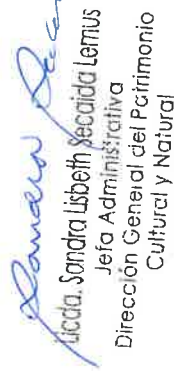 Licda. Sandra Lisbeth Secaida Lemus
Jefa Administrativa
Dirección General del Patrimonio
Cultural y Natural